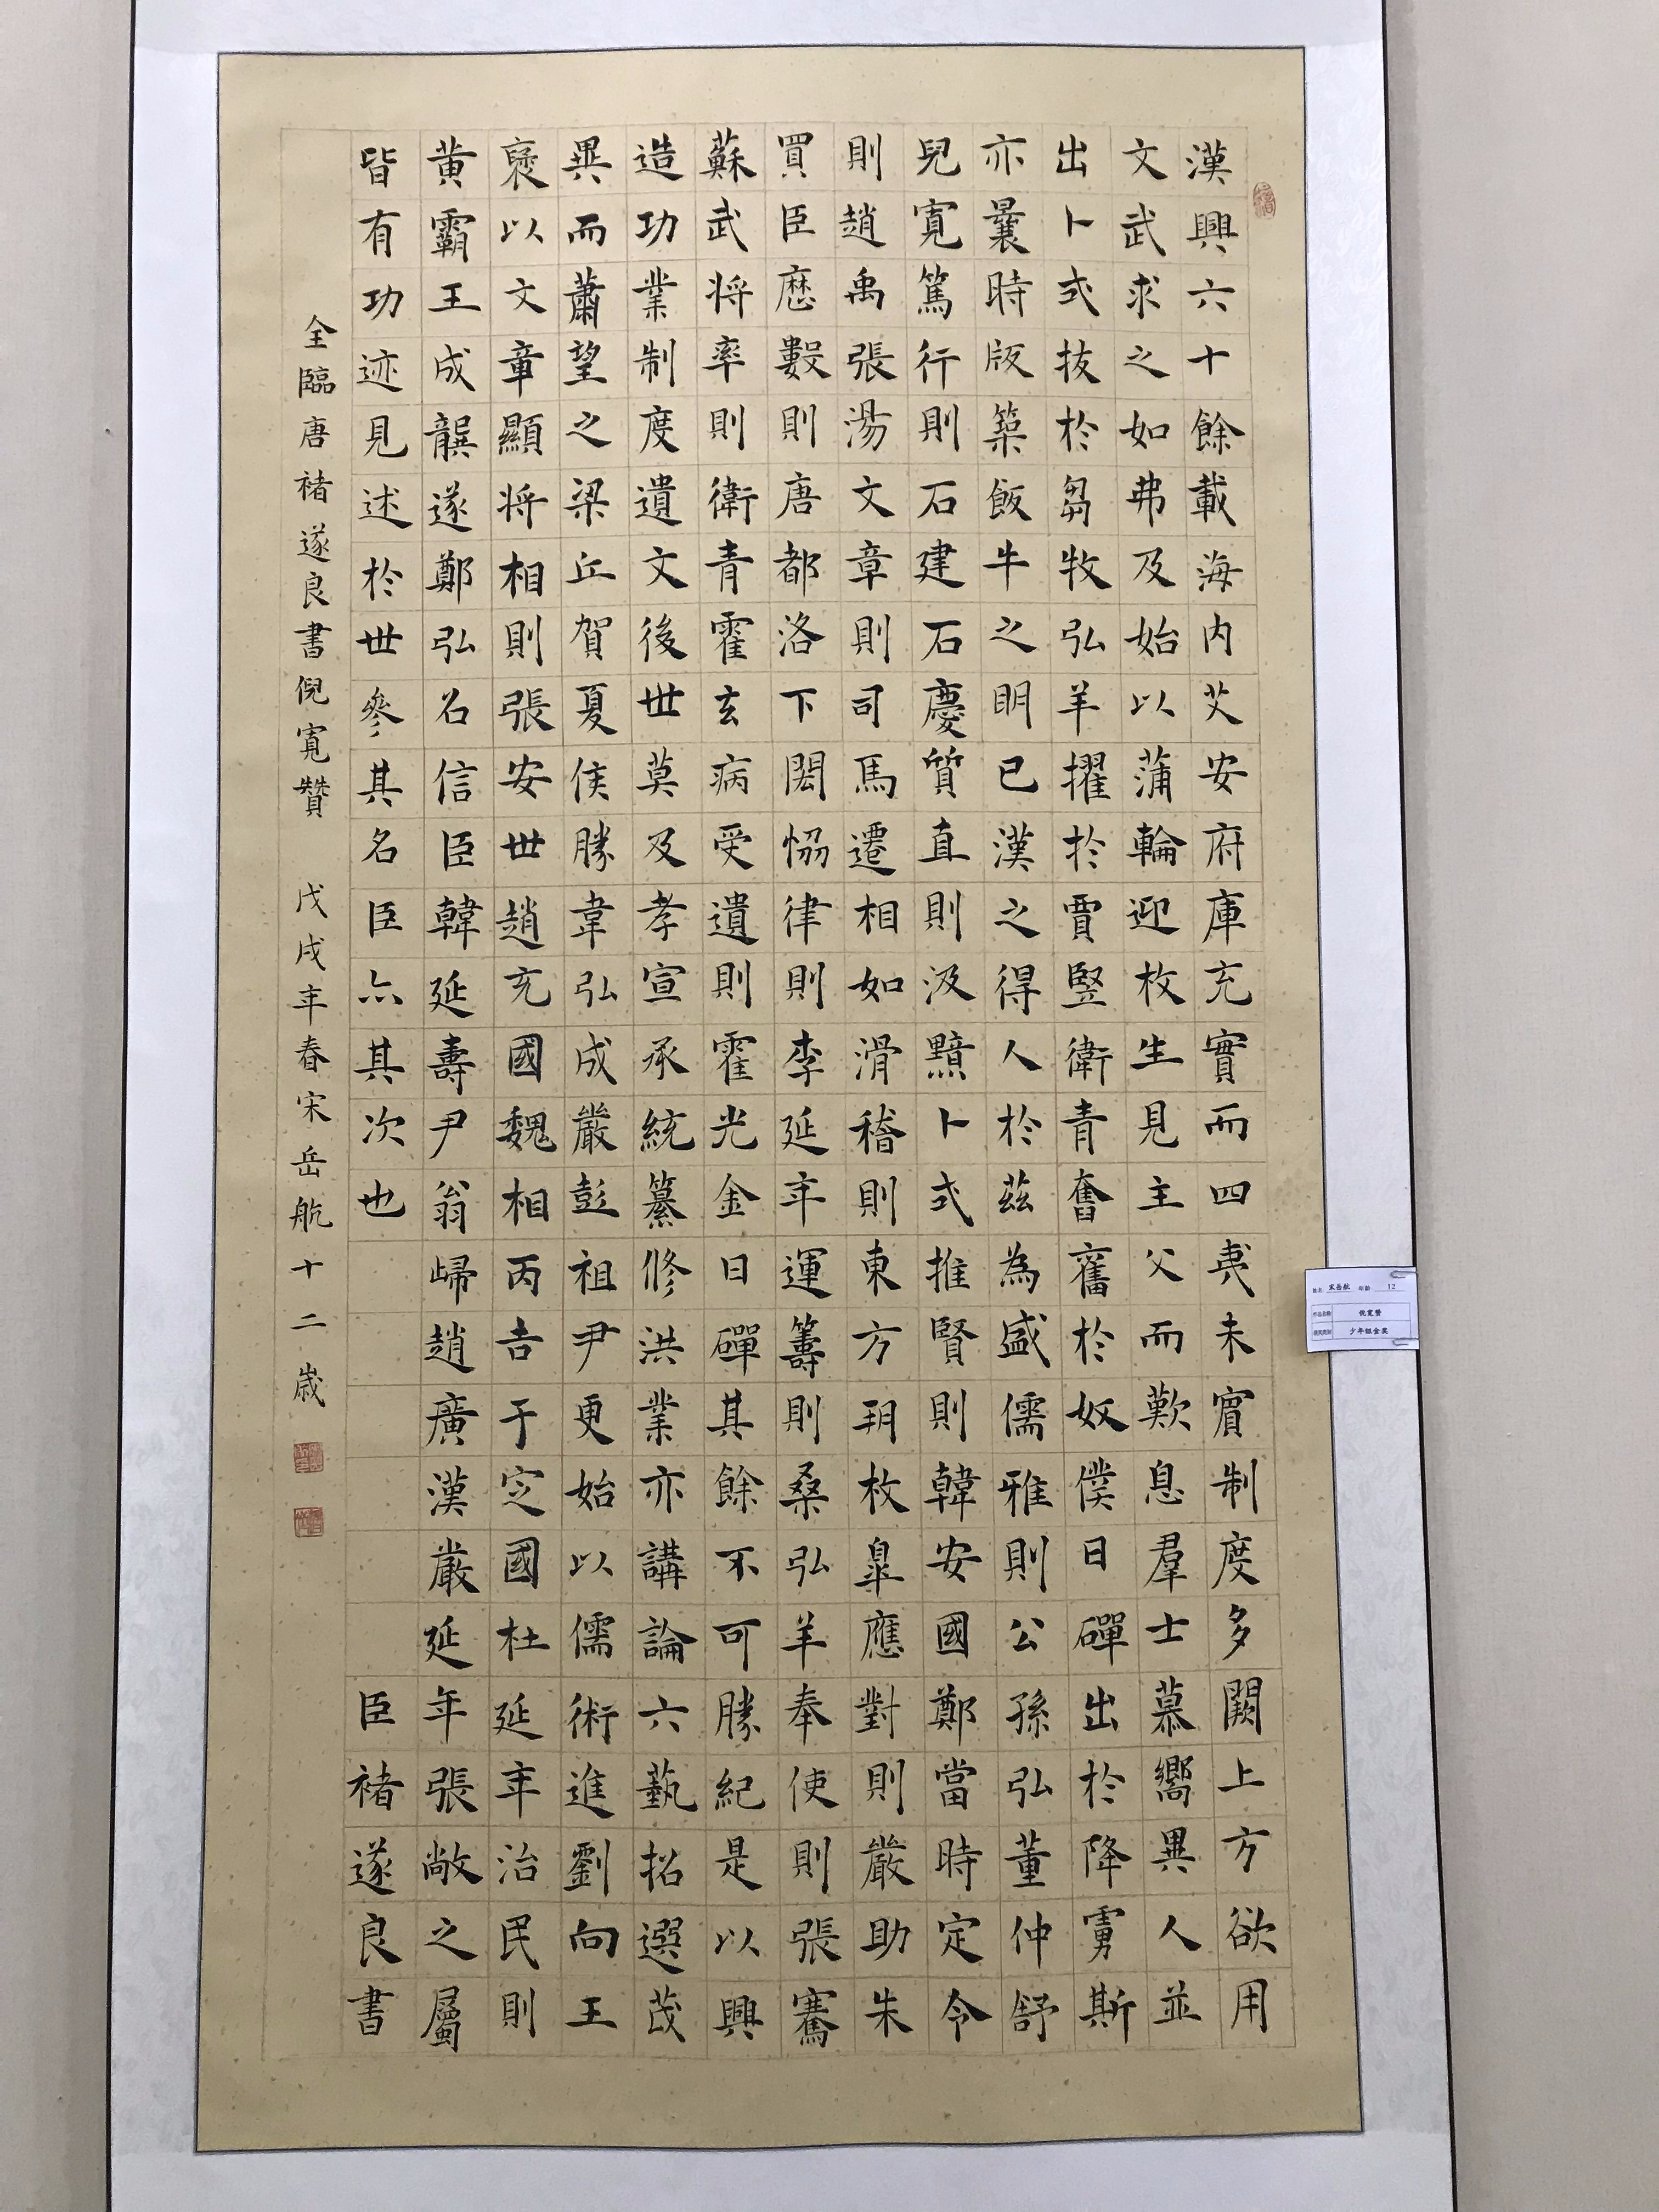 漢興六十餘載海內艾安府庫充實而四夷未賓制度多闕上方欲用
文武求之如弗及始以蒲輪迎枚生見主父而歎息羣士慕嚮異人並
出卜式拔於芻牧弘羊擢於賈豎衛青奮於奴僕日磾出於降虜斯
亦曩時版築飯牛之明已漢之得人於茲為盛儒雅則公孫弘董仲舒
兒寬篤行則石建石慶質直則汲黯卜式推賢則韓安國鄭當時定令
則趙禹張湯文章則司馬遷相如滑稽則東方朔枚皋應對則嚴助朱
買臣歷數則唐都洛下閎協律則李延年運籌則桑弘羊奉使則張騫
蘇武將率則衛青霍去病受遺則霍光金日磾其餘不可勝紀是以興
造功業制度遺文後世莫及孝宣承統纂修洪業亦講論六藝招選茂
異而蕭望之梁丘賀夏侯勝韋弘成嚴彭祖尹更始以儒術進劉向王
襃以文章顯將相則張安世趙充國魏相丙吉于定國杜延年治民則
黃霸王成龔遂鄭弘召信臣韓延壽尹翁歸趙廣漢嚴延年張敞之屬
皆有功迹見述於世參其名臣亦其次也
臣褚遂良書
全臨唐褚遂良書倪寬贊 戊戌年春宋岳航十二歲
姓名 宋岳航 年齡 12
作品名稱 倪寬贊
獲獎類別 少年組金獎